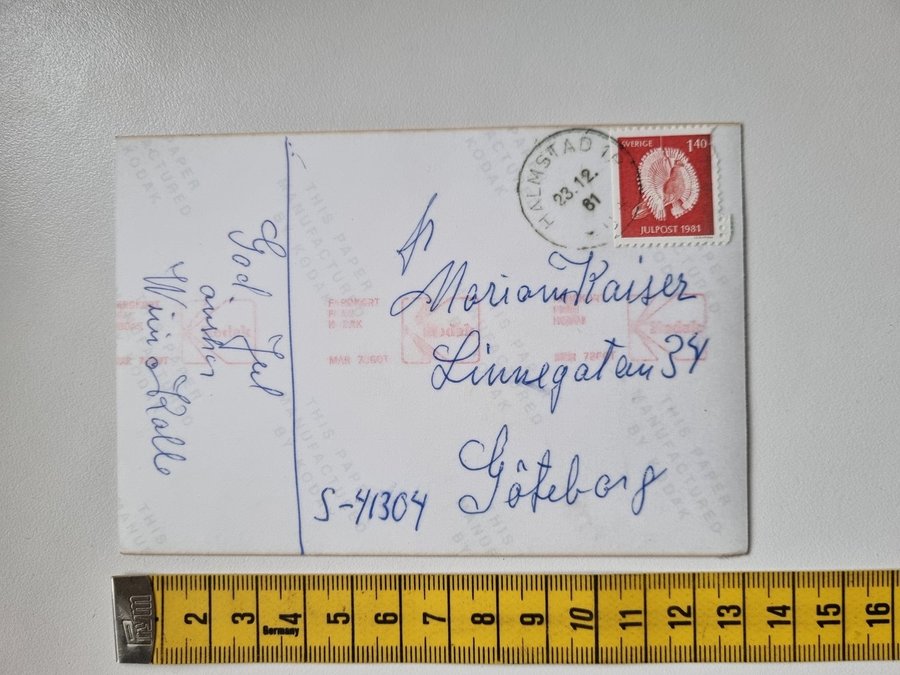 God Jul
önskar
Winni o Kalle
Fr
Mariann Kaiser
Linnegatan 34
S-41304 Göteborg
HALMSTAD 1
23.12.
81
SVERIGE 140
JULPOST 1981
THIS PAPER
MANUFACTURED
BY KODAK
MAR 78
2 3 4 5 6 7 8 9 10 11 12 13 14 15 16
Germany